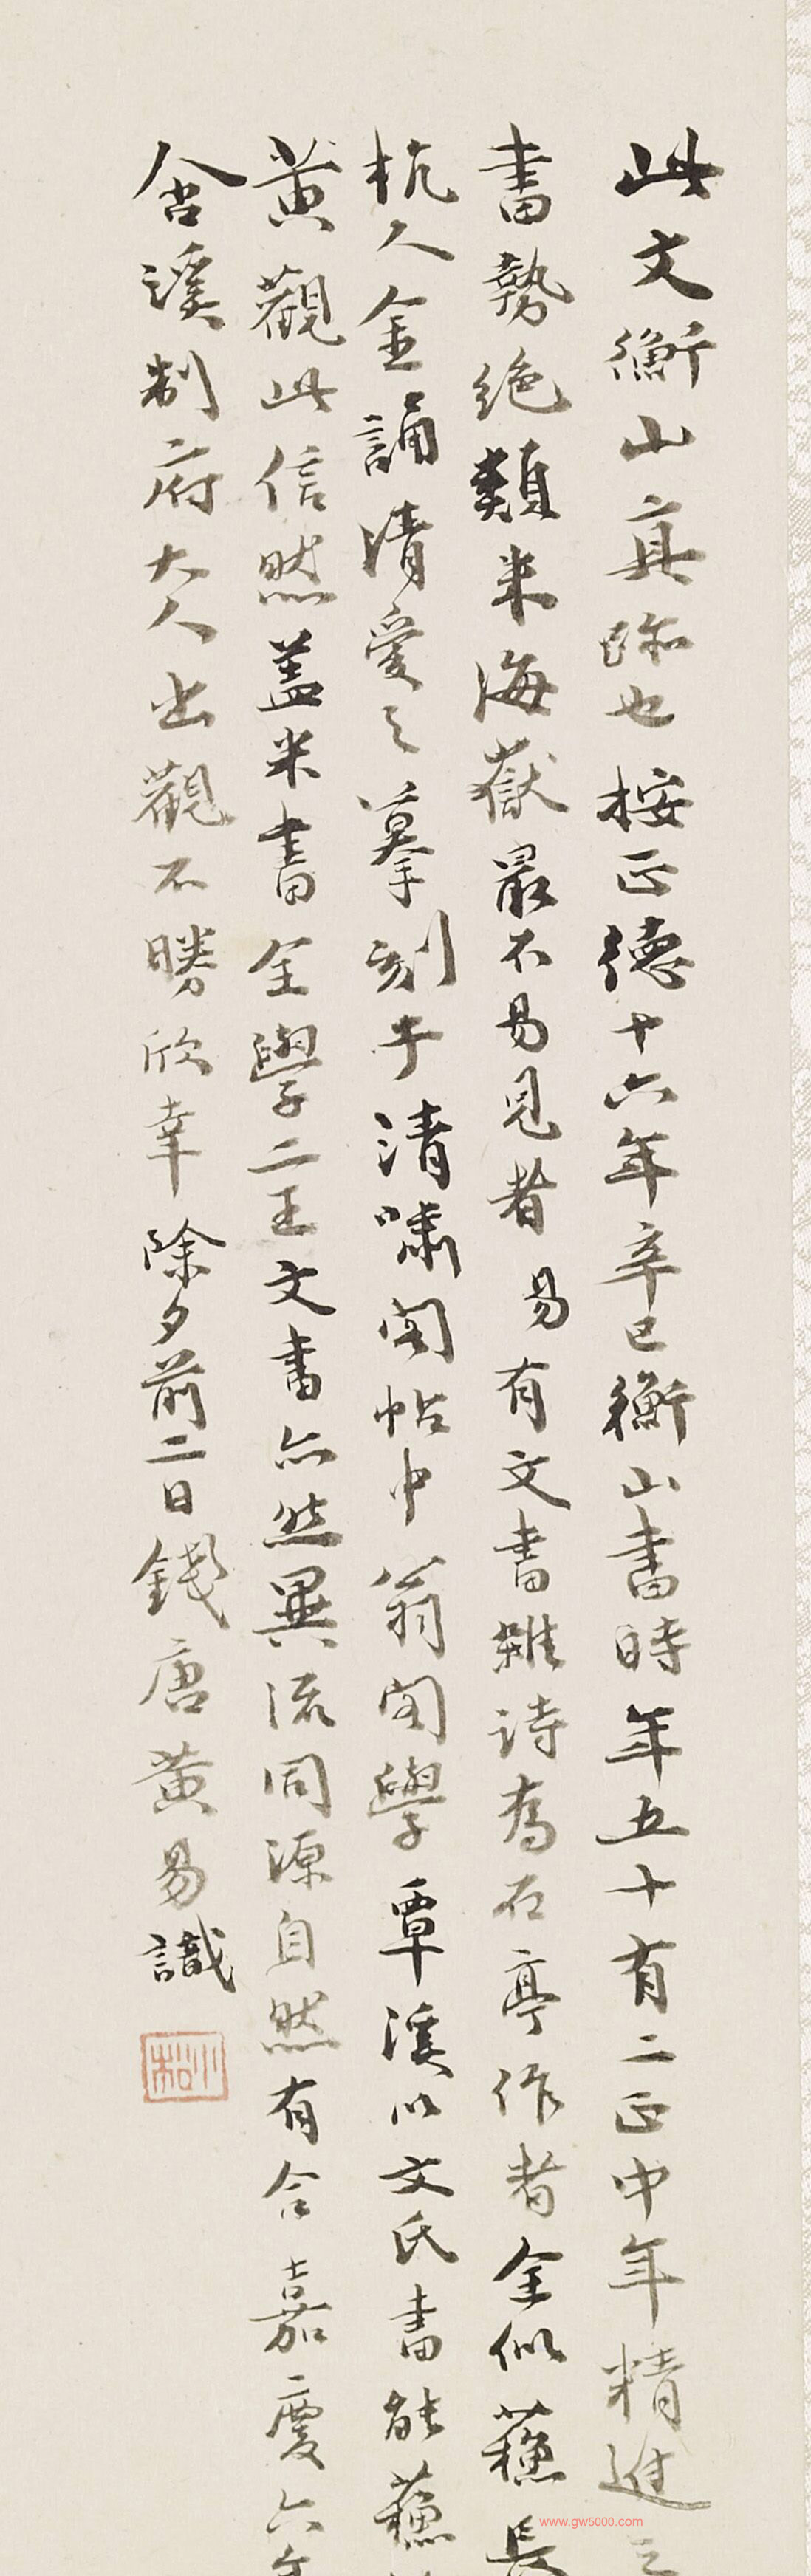 此文衡山真跡也桉正德十六年辛巳衡山書時年五十有二正中年精進之
書勢絶類米海嶽最不易見者易有文書雜詩為石亭作者全似蘓長
杭人金誦清愛之摹刻于清嘯閣帖中翁閣學覃溪以文氏書能蘓
黄觀此信然葢米書全學二王文書亦然異流同源自然有合嘉慶六年
含溪制府大人出觀不勝欣幸除夕前二日錢唐黄易識
小松
www.gw5000.com